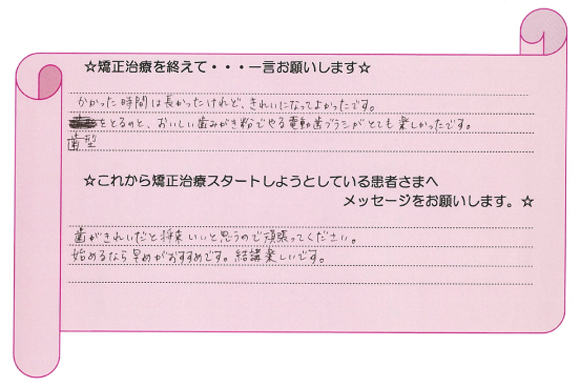 ☆矯正治療を終えて・・・一言お願いします☆
かかった時間は長かったけれど、きれいになってよかったです。
をとるのと、おいしい歯みがき粉でやる電動歯ブラシがとても楽しかったです。
歯型
☆これから矯正治療スタートしようとしている患者さまへ
メッセージをお願いします。☆
歯がきれいだと将来いいと思うので頑張ってください。
始めるなら早めがおすすめです。結構楽しいです。